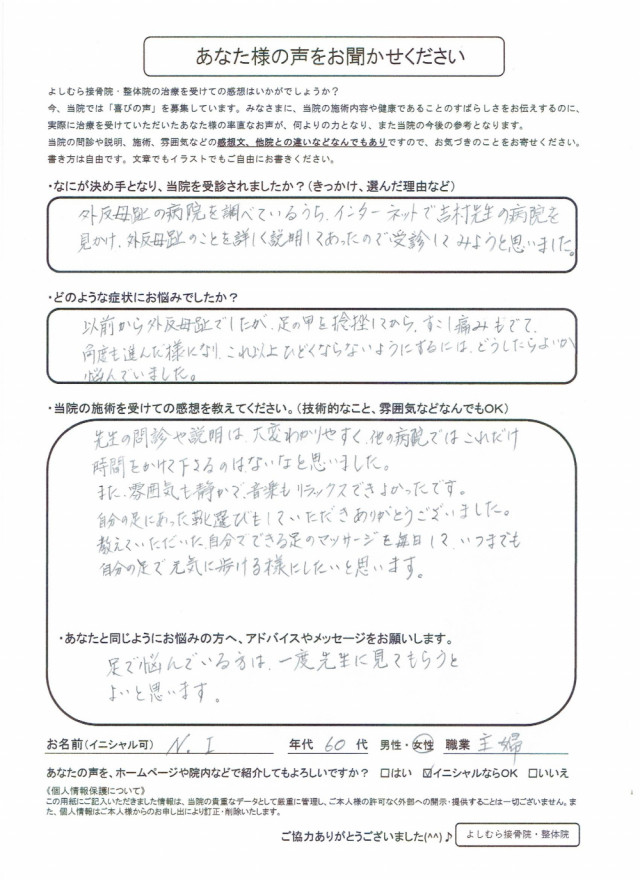 あなた様の声をお聞かせください
よしむら接骨院・整体院の治療を受けての感想はいかがでしょうか？
今、当院では「喜びの声」を募集しています。みなさまに、当院の施術内容や健康であることのすばらしさをお伝えするのに、
実際に治療を受けていただいたあなた様の率直なお声が、何よりの力となり、また当院の今後の参考となります。
当院の問診や説明、施術、雰囲気などの感想文、他院との違いなどなんでもありですので、お気づきのことをお寄せください。
書き方は自由です。文章でもイラストでもご自由にお書きください。
・なにが決め手となり、当院を受診されましたか？（きっかけ、選んだ理由など）
外反母趾の病院を調べているうち、インターネットで吉村先生の病院を
見かけ、外反母趾のことを詳しく説明してあったので受診してみようと思いました。
・どのような症状にお悩みでしたか？
以前から外反母趾でしたが、足の甲を捻挫してから、すこし痛みもでて、
角度も進んだ様になり、これ以上ひどくならないようにするには、どうしたらよいか
悩んでいました。
・当院の施術を受けての感想を教えてください。（技術的なこと、雰囲気などなんでもOK）
先生の問診や説明は、大変わかりやすく、他の病院ではこれだけ
時間をかけて下さるのはないなと思いました。
また、雰囲気も静かで、音楽もリラックスできよかったです。
自分の足にあった靴選びもしていただきありがとうございました。
教えていただいた、自分でできる足のマッサージを毎日して、いつまでも
自分の足で元気に歩ける様にしたいと思います。
・あなたと同じようにお悩みの方へ、アドバイスやメッセージをお願いします。
足で悩んでいる方は、一度先生に見てもらうと
よいと思います。
お名前（イニシャル可） N. I 年代 60 代 男性・女性 職業 主婦
あなたの声を、ホームページや院内などで紹介してもよろしいですか？ □はい ☑イニシャルならOK □いいえ
《個人情報保護について》
この用紙にご記入いただきました情報は、当院の貴重なデータとして厳重に管理し、ご本人様の許可なく外部への開示・提供することは一切ございません。ま
た、個人情報はご本人様からのお申し出により訂正・削除いたします。
ご協力ありがとうございました(^^)♪ よしむら接骨院・整体院